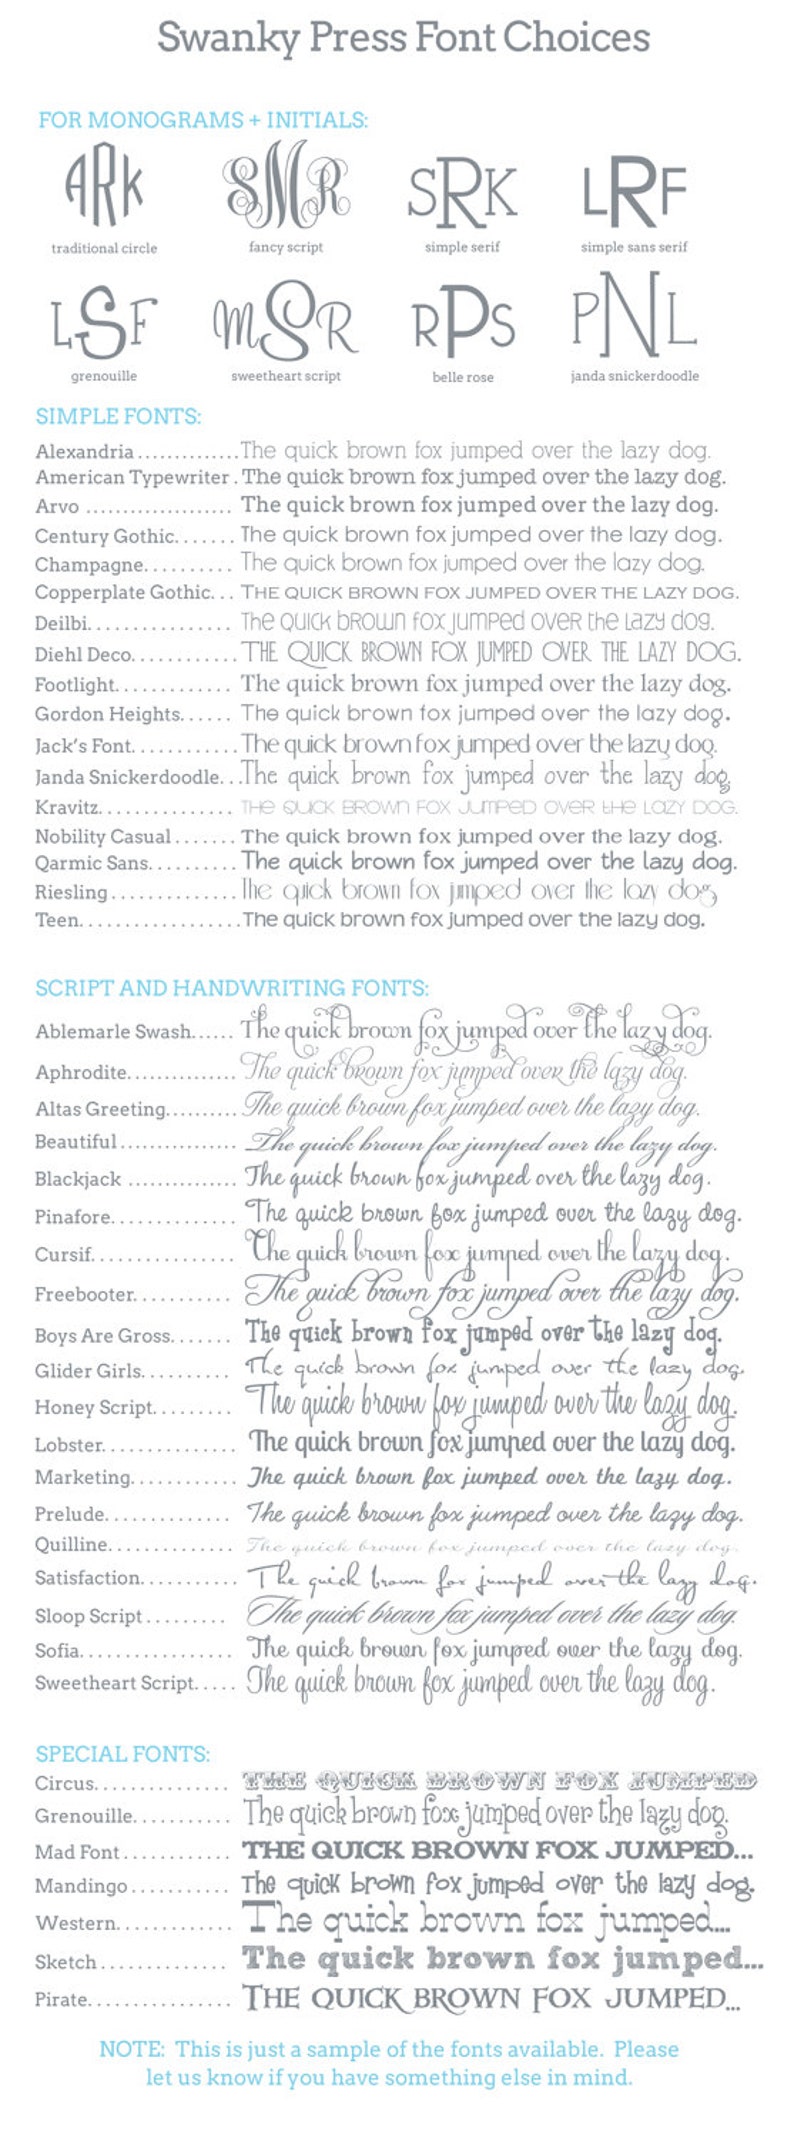 Swanky Press Font Choices
FOR MONOGRAMS + INITIALS:
ARK SMR SRK LRF
traditional circle fancy script simple serif simple sans serif
LSF MSR RPS PNL
grenouille sweetheart script belle rose janda snickerdoodle
SIMPLE FONTS:
Alexandria..............The quick brown fox jumped over the lazy dog.
American Typewriter . The quick brown fox jumped over the lazy dog.
Arvo .................... The quick brown fox jumped over the lazy dog.
Century Gothic....... The quick brown fox jumped over the lazy dog.
Champagne.......... The quick brown fox jumped over the lazy dog.
Copperplate Gothic... THE QUICK BROWN FOX JUMPED OVER THE LAZY DOG.
Deilbi................ The quick brown fox jumped over the lazy dog.
Diehl Deco............ THE QUICK BROWN FOX JUMPED OVER THE LAZY DOG.
Footlight............. The quick brown fox jumped over the lazy dog.
Gordon Heights...... The quick brown fox jumped over the lazy dog.
Jack's Font............ The quick brown fox jumped over the lazy dog.
Janda Snickerdoodle...The quick brown fox jumped over the lazy dog.
Kravitz............... THE QUICK BROWN FOX JUMPED OVER THE LAZY DOG.
Nobility Casual....... The quick brown fox jumped over the lazy dog.
Qarmic Sans.......... The quick brown fox jumped over the lazy dog.
Riesling.............. The quick brown fox jumped over the lazy dog,
Teen..................The quick brown fox jumped over the lazy dog.
SCRIPT AND HANDWRITING FONTS:
Ablemarle Swash...... The quick brown fox jumped over the lazy dog.
Aphrodite............... The quick brown fox jumped over the lazy dog.
Altas Greeting.......... The quick brown fox jumped over the lazy dog.
Beautiful................ The quick brown fox jumped over the lazy dog.
Blackjack ............... The quick brown fox jumped over the lazy dog.
Pinafore.............. The quick brown fox jumped over the lazy dog.
Cursif................ The quick brown fox jumped over the lazy dog.
Freebooter........... The quick brown fox jumped over the lazy dog.
Boys Are Gross....... The quick brown fox jumped over the lazy dog.
Glider Girls.......... The quick brown fox jumped over the lazy dog.
Honey Script......... The quick brown fox jumped over the lazy dog.
Lobster............... The quick brown fox jumped over the lazy dog.
Marketing............ The quick brown fox jumped over the lazy dog.
Prelude.............. The quick brown fox jumped over the lazy dog.
Quilline.............. The quick brown fox jumped over the lazy dog.
Satisfaction........... The quick brown fox jumped over the lazy dog.
Sloop Script......... The quick brown fox jumped over the lazy dog.
Sofia................. The quick brown fox jumped over the lazy dog.
Sweetheart Script..... The quick brown fox jumped over the lazy dog.
SPECIAL FONTS:
Circus............... THE QUICK BROWN FOX JUMPED
Grenouille........... The quick brown fox jumped over the lazy dog.
Mad Font ............ THE QUICK BROWN FOX JUMPED...
Mandingo........... The quick brown fox jumped over the lazy dog.
Western............. The quick brown fox jumped...
Sketch .............. The quick brown fox jumped...
Pirate................ THE QUICK BROWN FOX JUMPED...
NOTE: This is just a sample of the fonts available. Please
let us know if you have something else in mind.